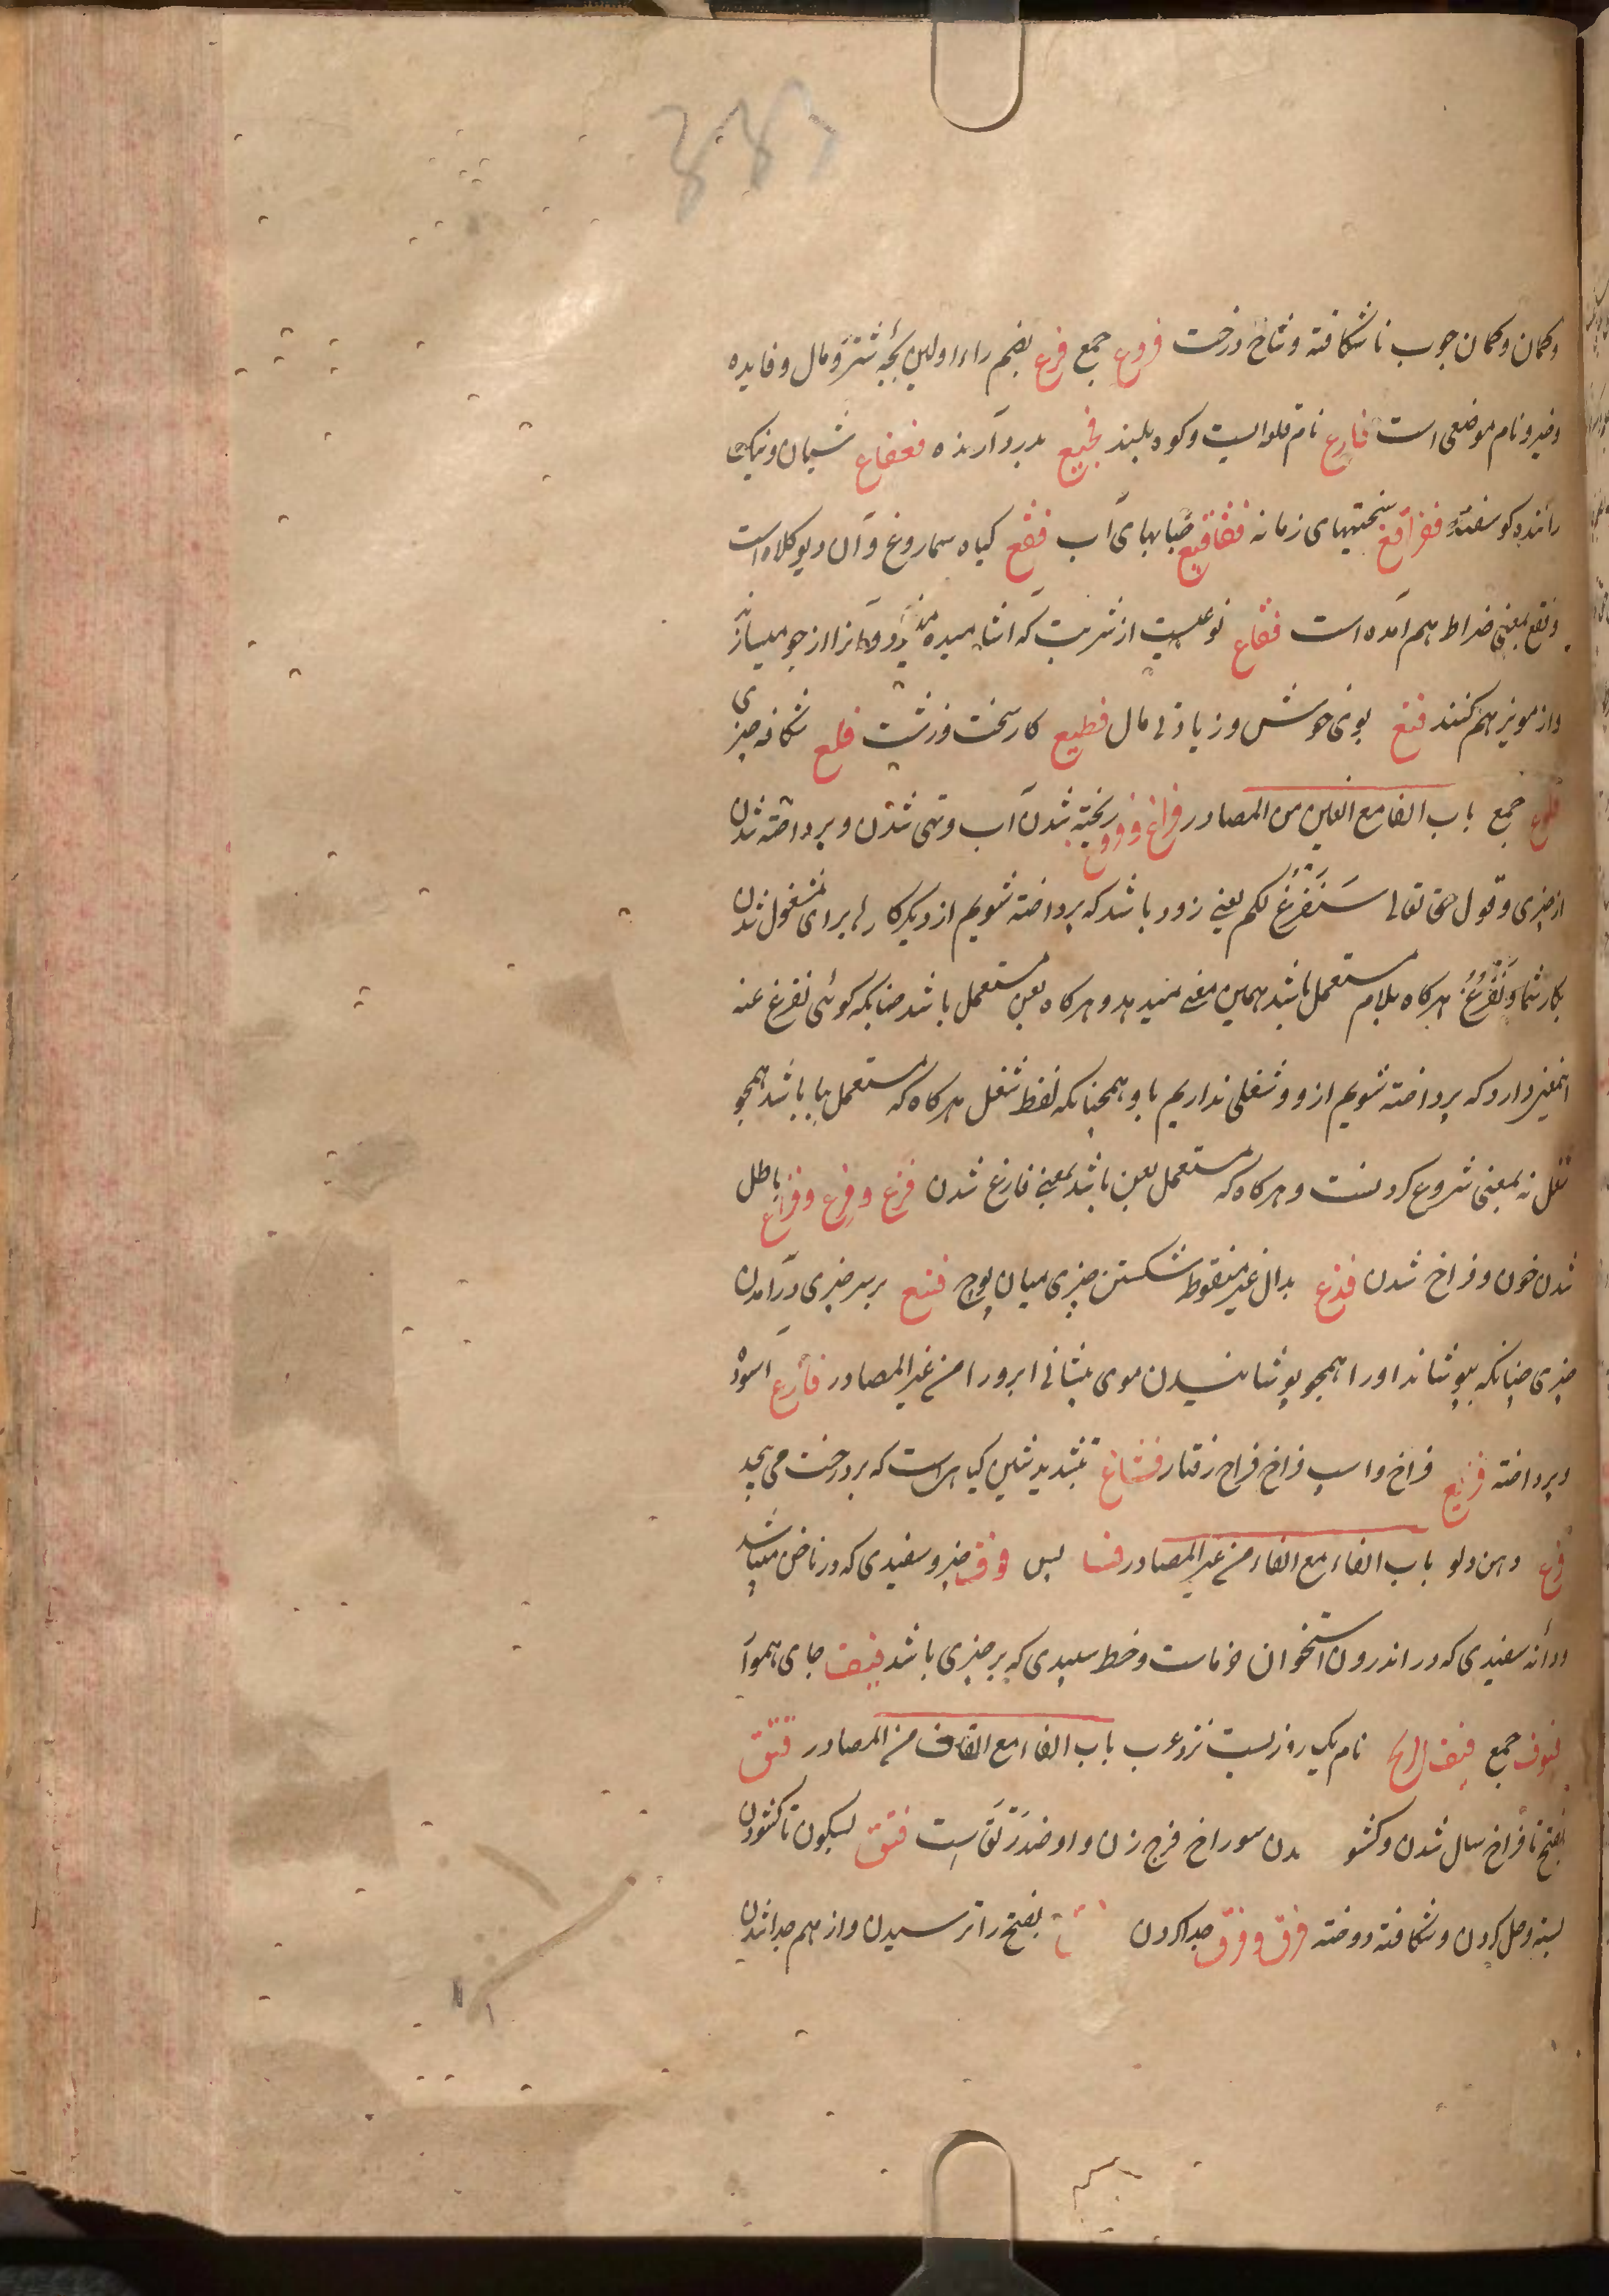 وکمان وکمان چوب ناشکافته وشاخ درخت فروع جمع فرع بضم راء اولین بچۀ شتر ومال وفایده
وخیر ونام موضعی است فارع نام قلعه ایست وکوه بلند فجیع بدرد آرنده فعفاع شبان ونیک
راننده کوسفند فزاقع سختیهای زمانه فقاقیع حبابهای آب فقع کیاه سماروغ وآن دیوکلاه است
وفقع بمعنی ضراط هم آمده است فقاع نوعیست از شربت که آشامیده میشود وآنرا از جو میسازند
واز مویز هم کنند فنع بوی خوش وزیادتی مال فظیع کار سخت وزشت فلع شکاف چیزی
فلوع جمع باب الفا مع الغین من المصادر فراغ وفروغ ریخته شدن آب وتهی شدن وپرداخته شدن
از چیزی وقول حق تعالی سَنَفْرُغُ لکم یعنی زود باشد که پرداخته شویم از دیکر کارها برای مشغول شدن
بکار شما ونَفْرُغُ هرکاه بلام مستعمل باشد همین معنی میدهد وهرکاه بعن مستعمل باشد چنانکه کوئی نفرغ عنه
اینمعنی دارد که پرداخته شویم ازو وشغلی نداریم باو همچنانکه لفظ شغل هرکاه که مستعمل ببا باشد همچو
شغل به بمعنی شروع کردنست وهرکاه که مستعمل بعن باشد بمعنی فارغ شدن فرغ وفرغ وفراغ باطل
شدن خون وفراخ شدن فدغ بدال غیر منقوط شکستن چیزی میان پوچ فشغ بر سر چیزی درآمدن
چیزی چنانکه بپوشاند اورا همچو پوشانیدن موی پیشانی ابرو را من غیر المصادر فارغ آسوده
وپرداخته فریغ فراخ واسپ فراخ رفتار فشاغ بتشدید شین کیاهیست که بر درخت می پیچد
فرغ دهن دلو باب الفاء مع الفاء من غیر المصادر فسا پس فوف چیز وسفیدی که در ناخن میباشد
ودانه سفیدی که در اندرون استخوان خرماست وخط سپیدی که بر چیزی باشد فیف جای هموار
فیوف جمع فیف الریح نام یک روزیست نزد عرب باب الفاء مع القاف من المصادر فتق
بفتح تا فراخ سال شدن وکشو دن سوراخ فرج زن واو ضد رَتَق است فتق بسکون تا کشودن
بسته وصل کردن وشکافته دوخته فرق وفرق جدا کردن بفتح را ترسیدن واز هم جدا شدن